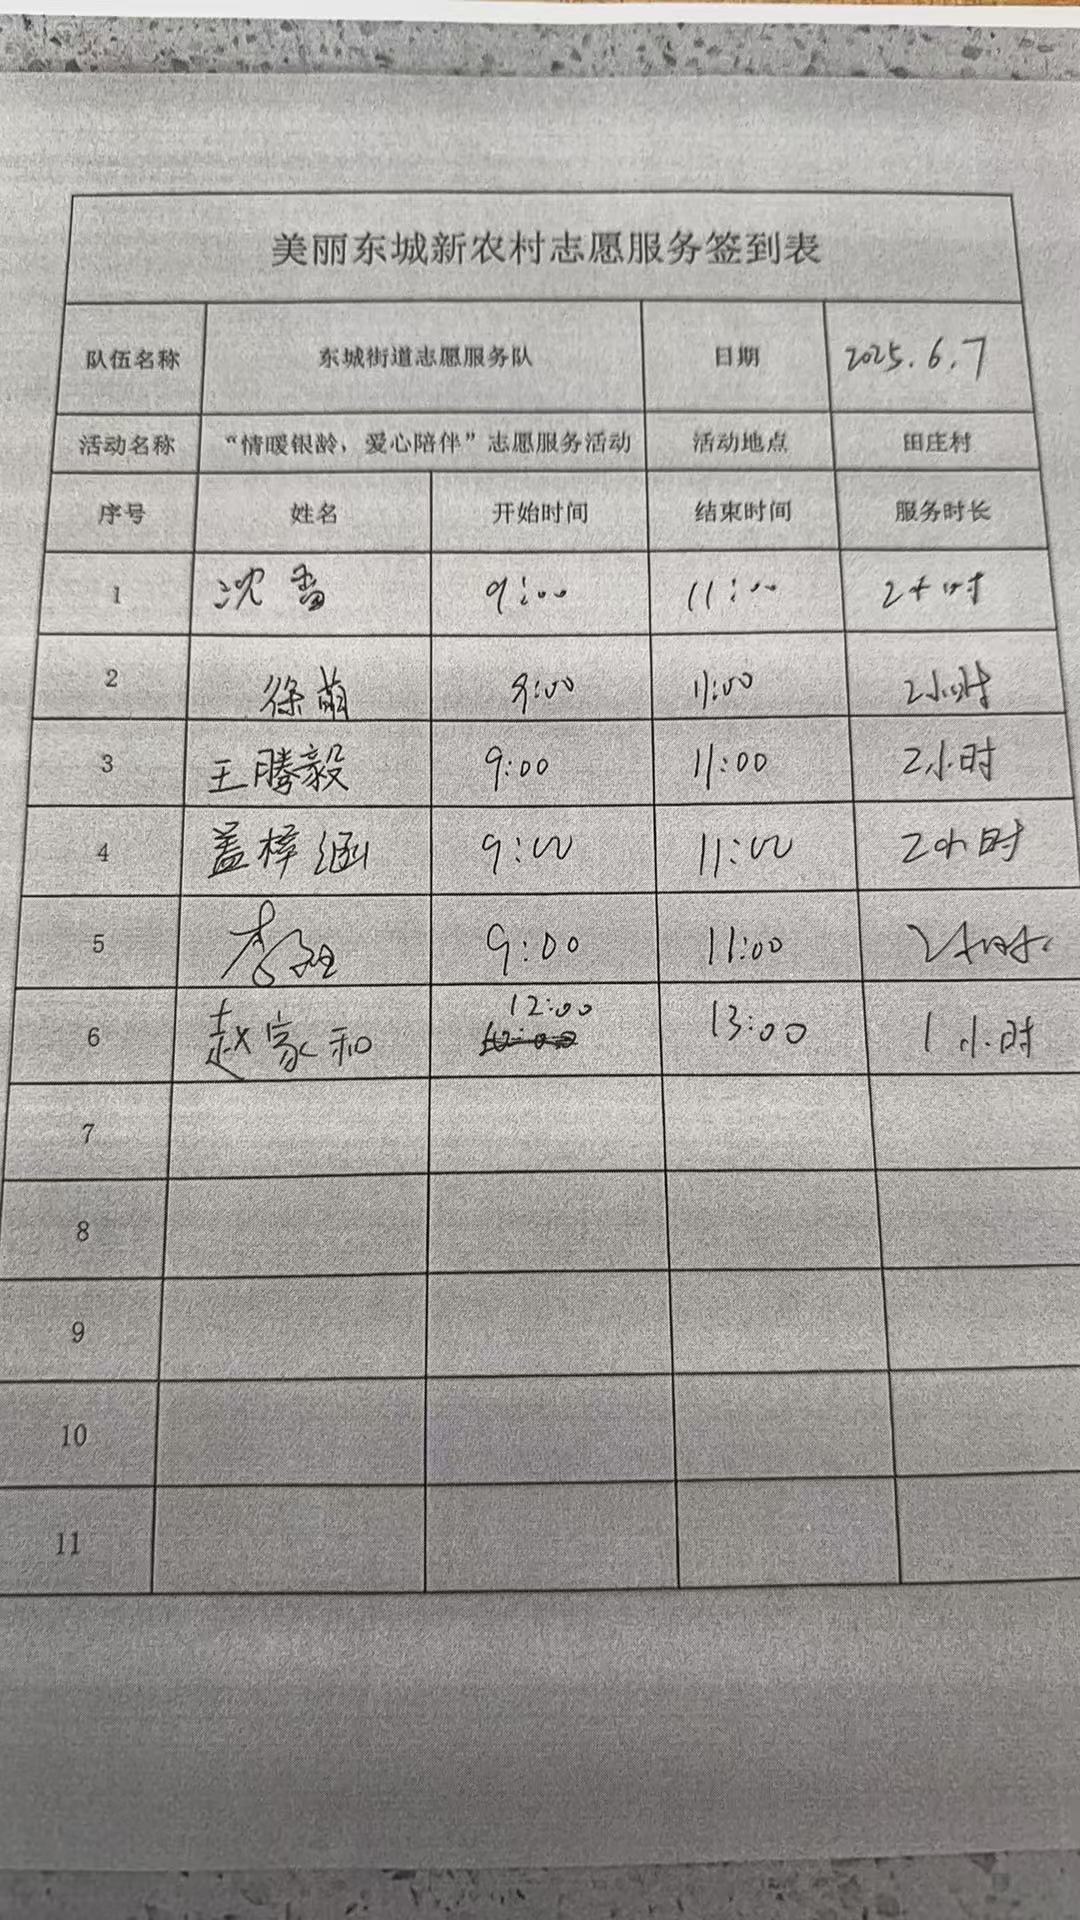 美丽东城新农村志愿服务签到表
队伍名称 东城街道志愿服务队 日期 2025.6.7
活动名称 “情暖银龄，爱心陪伴”志愿服务活动 活动地点 田庄村
序号 姓名 开始时间 结束时间 服务时长
1 沈香 9:00 11:00 2小时
2 徐萌 9:00 11:00 2小时
3 王腾毅 9:00 11:00 2小时
4 盖梓涵 9:00 11:00 2小时
5 李 9:00 11:00 2小时
6 赵家和 12:00 13:00 1小时
7
8
9
10
11